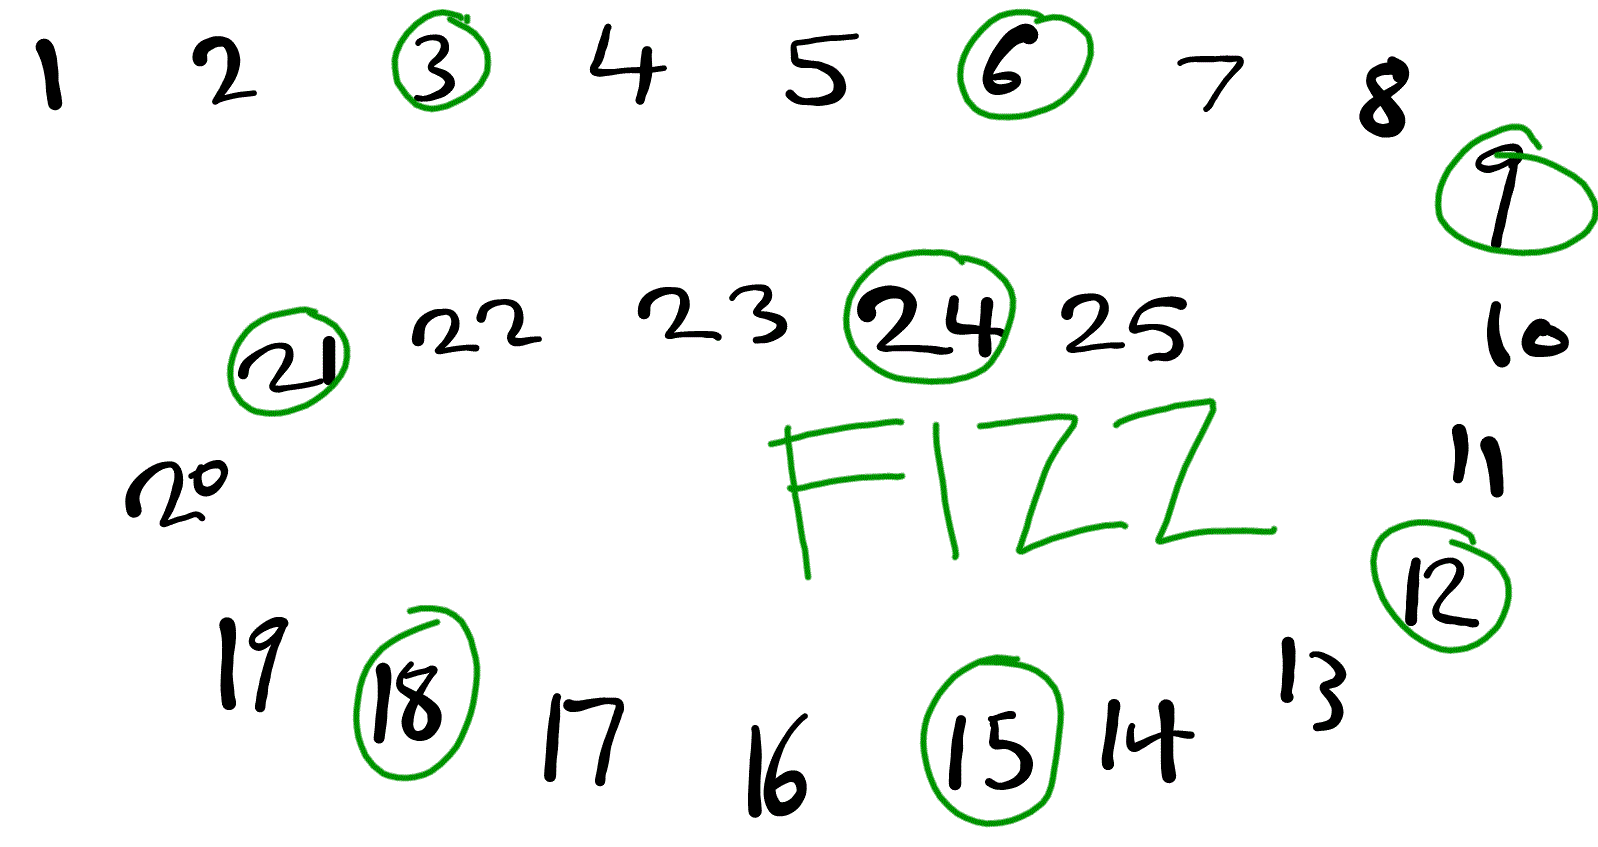 1 2 3 4 5 6 7 8
9
10
11
12
13
14
15
16
17
18
19
20
21 22 23 24 25
FIZZ